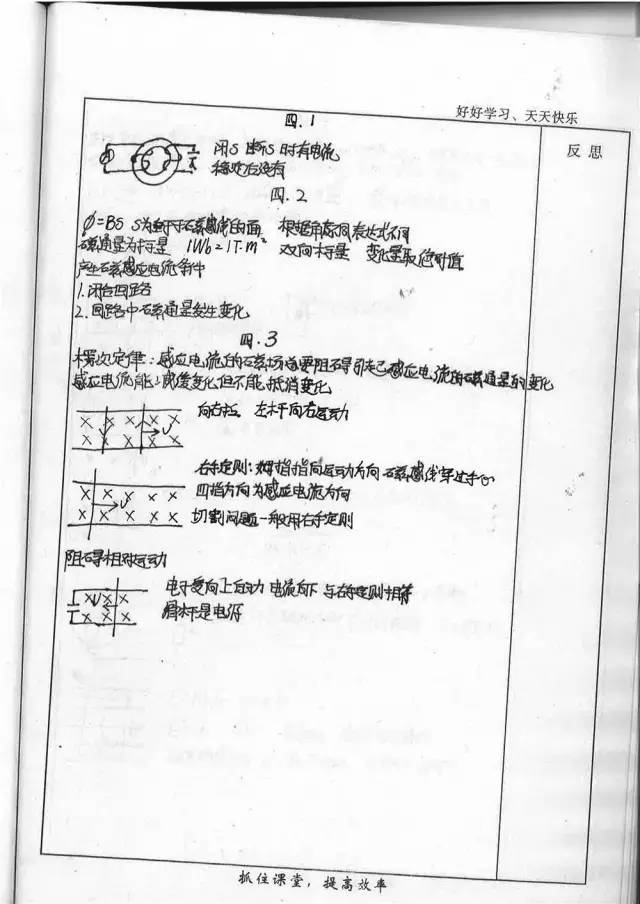 好好学习、天天快乐
反思
四.1
闭S 断S 时有电流
稳定后没有
四.2
φ=BS S为垂直于磁感线的面 根据角标不同表达式不同
磁通量为标量 1Wb=1T·m² 双向标量 变化量取绝对值
产生磁感应电流条件
1.闭合回路
2.回路中磁通量发生变化
四.3
楞次定律:感应电流的磁场总要阻碍引起感应电流的磁通量的变化
感应电流能减缓变化但不能抵消变化
向右拉 左杆向右运动
右手定则:拇指指向运动方向 磁感线穿过手心
四指方向为感应电流方向
切割问题一般用右手定则
阻碍相对运动
电子受向上的力 电流向下 与右手定则相符
滑杆是电源
抓住课堂,提高效率